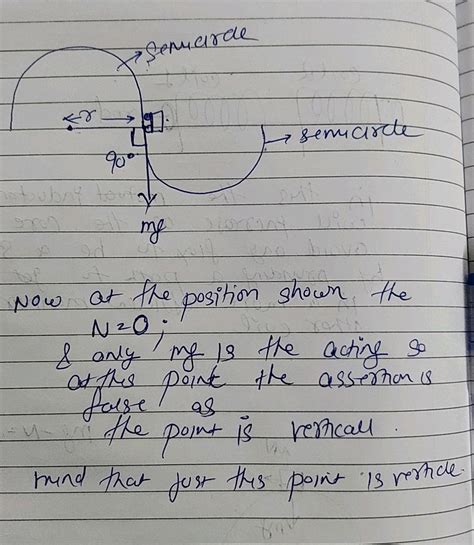 semicircle
r
semicircle
90°
mg
Now at the position shown the
N=0;
& only mg is the acting so
at this point the assertion is
false as
the point is verticall.
mind that just this point is verticle.